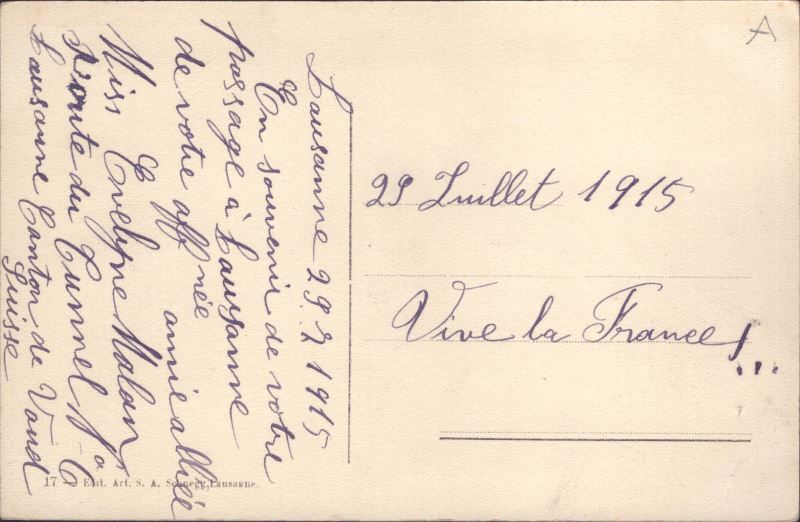 Lausanne 29.7.1915
En souvenir de votre
passage à Lausanne
de votre aff née
amie alliée
Miss Evelyne Malan
Route du Tunnel No 6
Lausanne Canton de Vaud
Suisse
29 Juillet 1915
Vive la France!...
17 - Edit. Art. S. A. Schnegg, Lausanne.
A